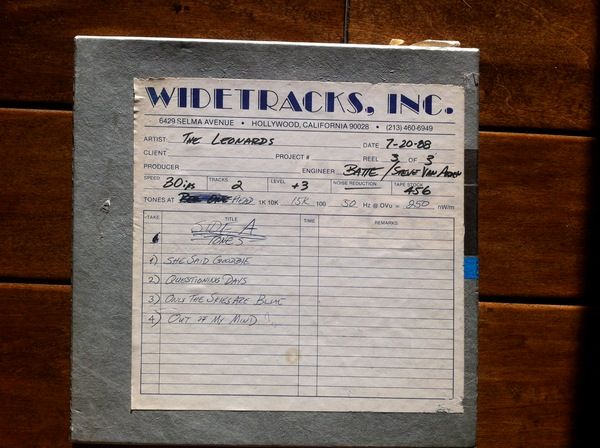 WIDETRACKS, INC.
6429 SELMA AVENUE • HOLLYWOOD, CALIFORNIA 90028 • (213) 460-6949
ARTIST THE LEONARDS DATE 7-20-88
CLIENT PROJECT # REEL 3 OF 3
PRODUCER ENGINEER BATTE / STEVE VAN
SPEED 30 ips TRACKS 2 LEVEL +3 NOISE REDUCTION TAPE STOCK 456
TONES AT 1K 10K 15K 100 50 Hz @ OVu = 250 nW/m
TAKE TITLE TIME REMARKS
SIDE A
TONES
1) SHE SAID GOODBYE
2) QUESTIONING DAYS
3) ONLY THE SKIES ARE BLUE
4) OUT OF MY MIND